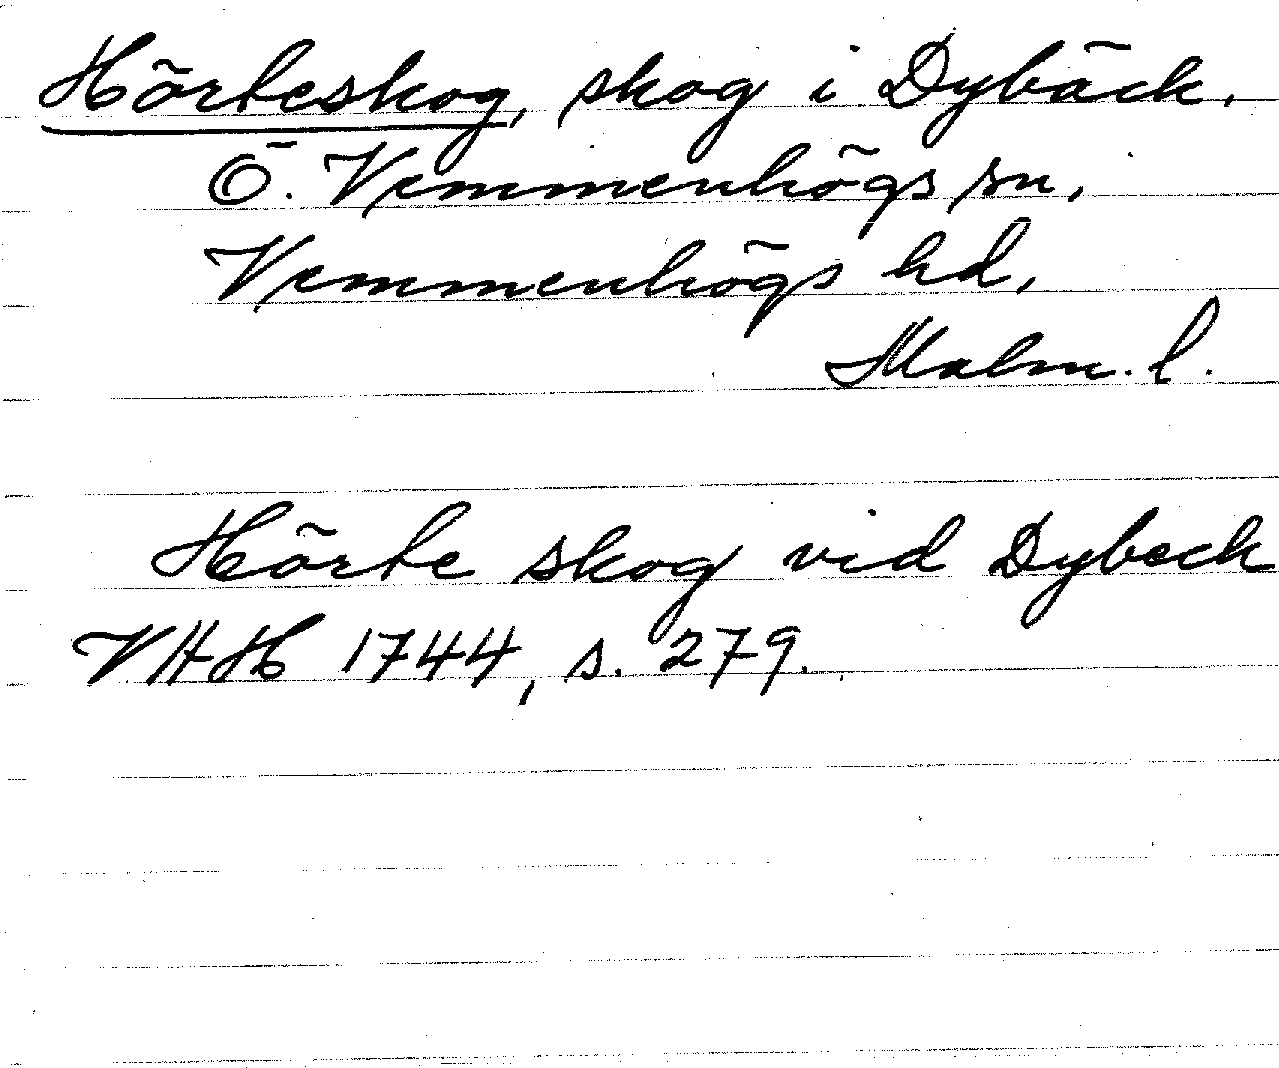 Hörteskog, skog i Dybäck,
Ö. Vemmenhögs sn,
Vemmenhögs hd,
Malm. l.
Hörte skog vid Dybeck
VHH 1744, s. 279.